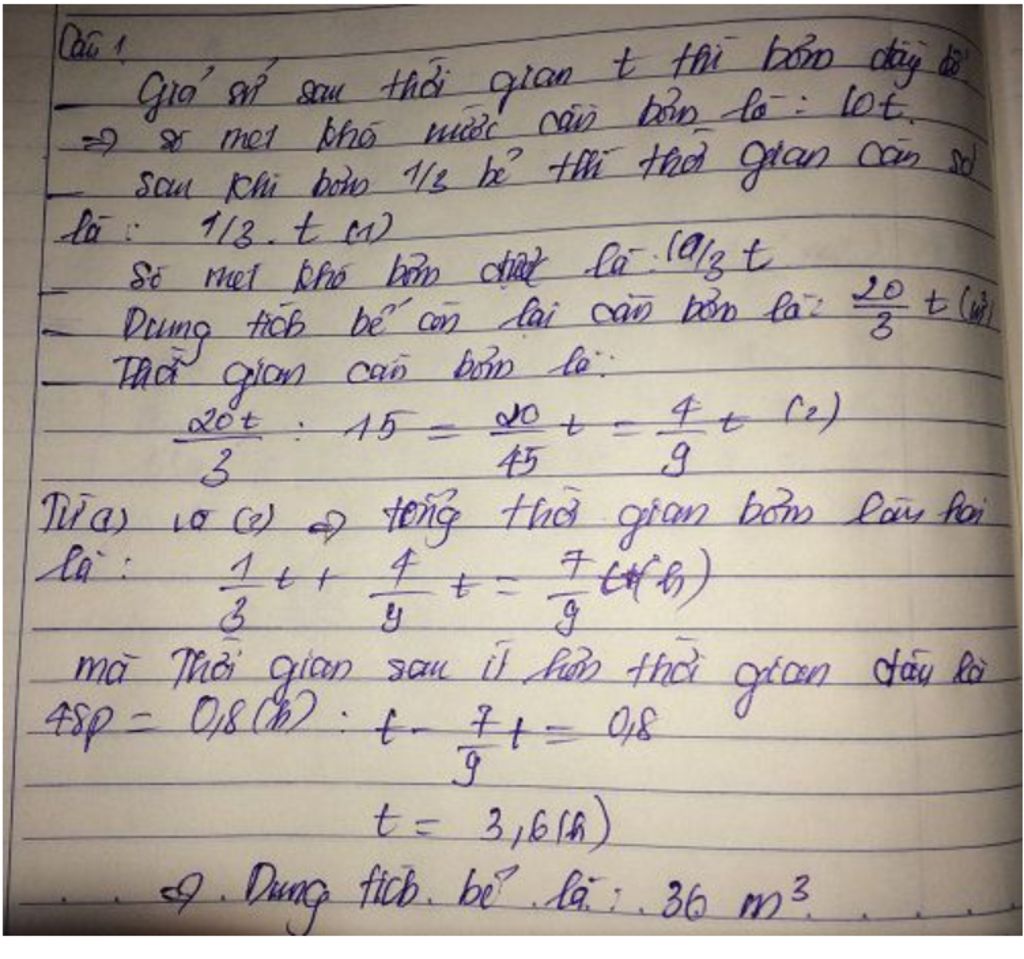 Câu 1.
Giả sử sau thời gian t thì bơm đầy bể
=> số mét khối nước cần bơm là : 10t.
- Sau khi bơm 1/3 bể thì thời gian cần sd
là : 1/3 . t (1)
- Số mét khối bơm được là : 10/3 t
- Dung tích bể còn lại cần bơm là: 20/3 t (m³)
- Thời gian cần bơm là:
20t/3 : 15 = 20/45 t = 4/9 t (2)
Từ (1) và (2) => tổng thời gian bơm lần hai
là : 1/3 t + 4/9 t = 7/9 t (h)
mà Thời gian sau ít hơn thời gian đầu là
48p = 0,8 (h) : t - 7/9 t = 0,8
t = 3,6 (h)
=> . Dung tích bể là : 36 m³